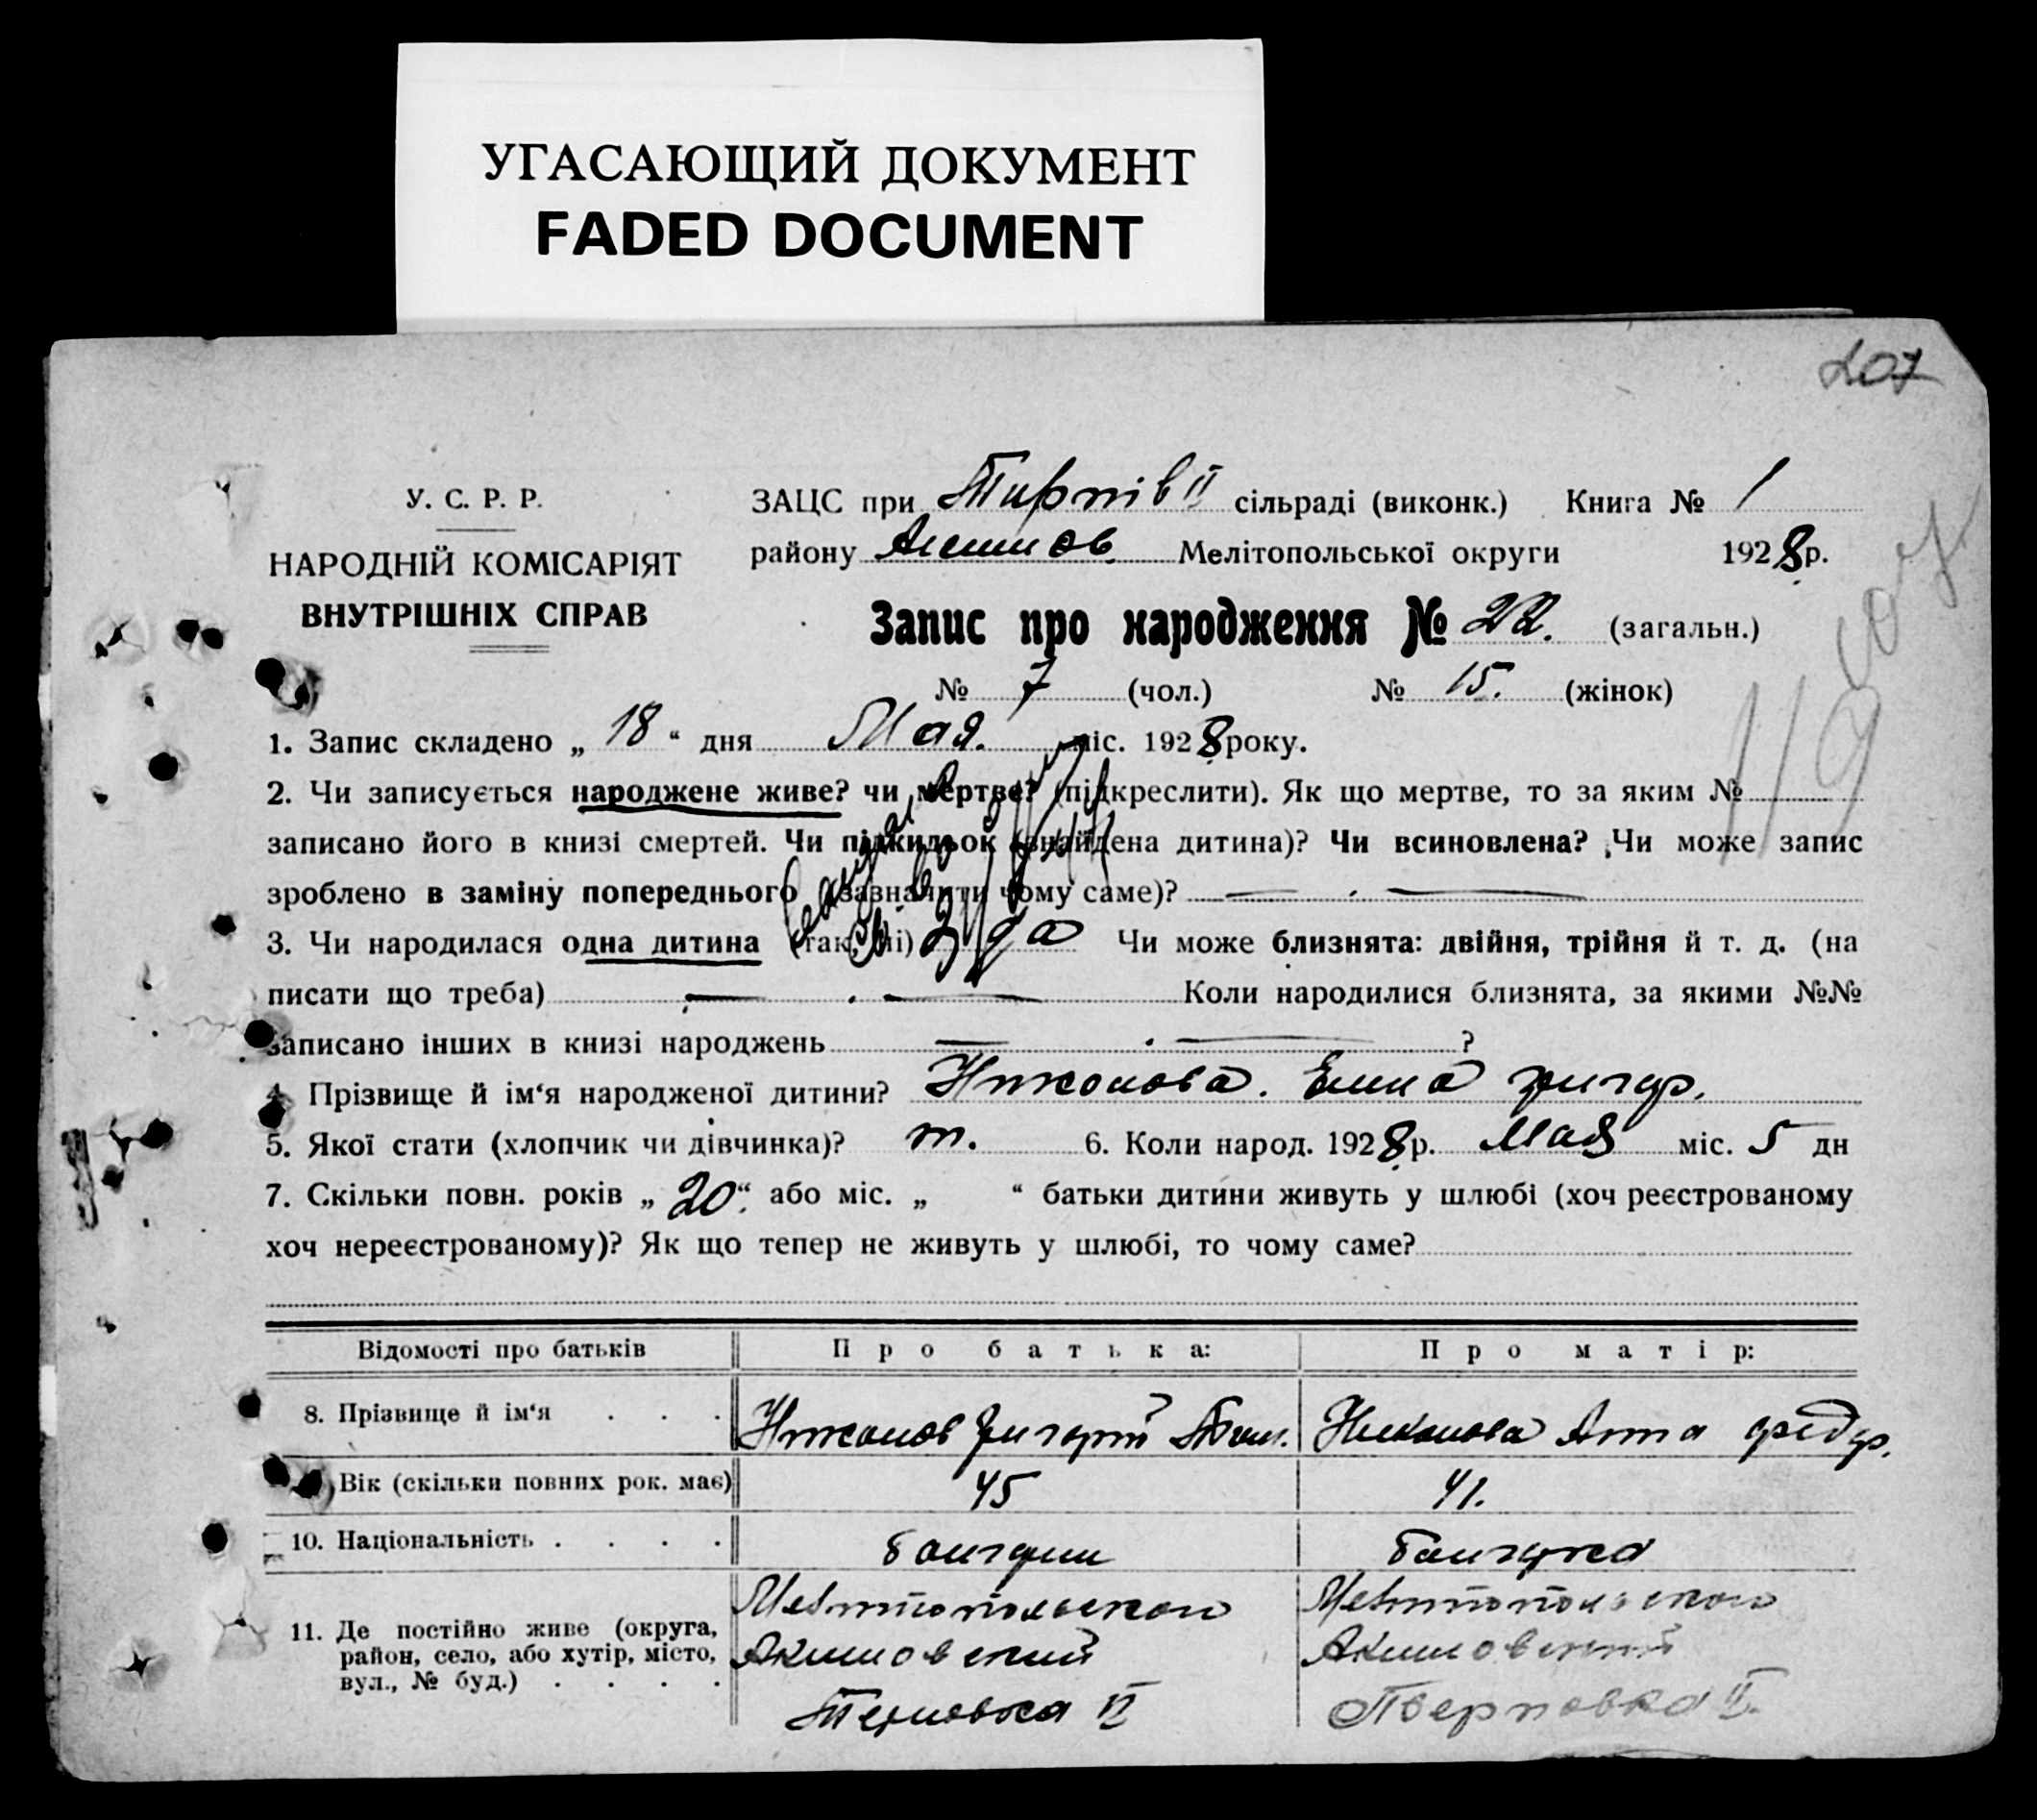 УГАСАЮЩИЙ ДОКУМЕНТ
FADED DOCUMENT
207
У. С. Р. Р.
НАРОДНІЙ КОМІСАРІЯТ
ВНУТРІШНІХ СПРАВ
ЗАЦС при II сільраді (виконк.) Книга № 1
району Аким ов. Мелітопольської округи 1928 р.
Запис про народження № 22. (загальн.)
№ 7 (чол.) № 15. (жінок)
119
1. Запис складено „ 18 “ дня Мая. міс. 1928 року.
2. Чи записується народжене живе? чи мертве? (підкреслити). Як що мертве, то за яким №
записано його в книзі смертей. Чи підкидьок (знайдена дитина)? Чи всиновлена? Чи може запис
зроблено в заміну попереднього (зазначити чому саме)? — . —
3. Чи народилася одна дитина (так, ні) да Чи може близнята: двійня, трійня й т. д. (на
писати що треба) — . — Коли народилися близнята, за якими №№
записано інших в книзі народжень — . — ?
4. Прізвище й ім‘я народженої дитини? Никонова. Григор.
5. Якої стати (хлопчик чи дівчинка)? 6. Коли народ. 1928 р. Мая міс. 5 дн
7. Скільки повн. років „ 20 “ або міс. „ “ батьки дитини живуть у шлюбі (хоч реєстрованому
хоч нереєстрованому)? Як що тепер не живуть у шлюбі, то чому саме?
Відомості про батьків Про батька: Про матір:
8. Прізвище й ім‘я . . . Никонов Григорий Никонова Анна Федор.
Вік (скільки повних рок. має) 45 41.
10. Національність . . . . болгарин болгарка
11. Де постійно живе (округа,
район, село, або хутір, місто,
вул., № буд.) . . . .
Мелитопольской Мелитопольской
Акимовский Акимовский
Терновка II II.